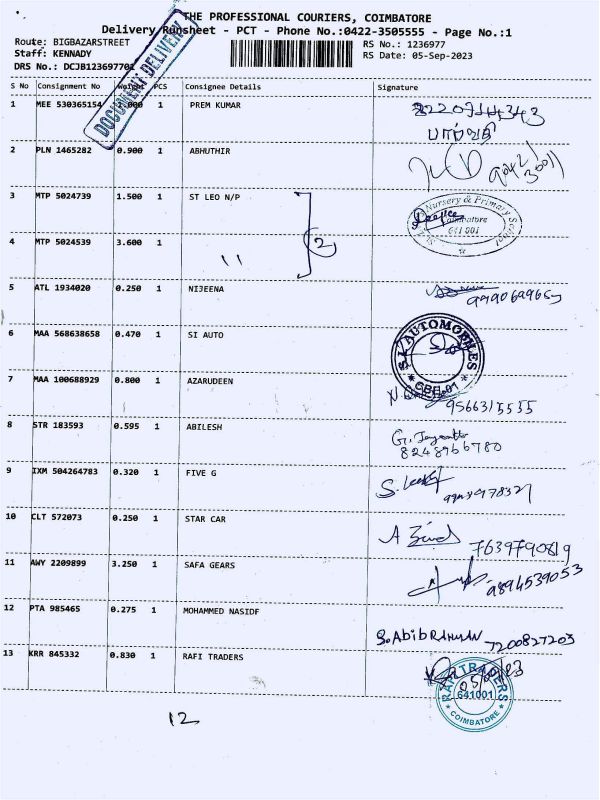 THE PROFESSIONAL COURIERS, COIMBATORE
Delivery Runsheet - PCT - Phone No.:0422-3505555 - Page No.:1
Route: BIGBAZARSTREET
RS No.: 1236977
Staff: KENNADY
RS Date: 05-Sep-2023
DRS No.: DCJB12369770
DOCUMENT DELIVERY
S No Consignment No Weight PCS Consignee Details Signature
1 MEE 530365154 2.000 1 PREM KUMAR
பார்வதி
2 PLN 1465282 0.900 1 ABHUTHIR
3 MTP 5024739 1.500 1 ST LEO N/P
Nursery & Primary School
Coimbatore
641 001
2
4 MTP 5024539 3.600 1
5 ATL 1934020 0.250 1 NIJEENA
6 MAA 568638658 0.470 1 SI AUTO
S.I. AUTOMOBILES
CBE-01
7 MAA 100688929 0.800 1 AZARUDEEN
9566315555
8 STR 183593 0.595 1 ABILESH
8248966780
9 IXM 504264783 0.320 1 FIVE G
10 CLT 572073 0.250 1 STAR CAR
7639790819
11 AWY 2209899 3.250 1 SAFA GEARS
9894539053
12 PTA 985465 0.275 1 MOHAMMED NASIDF
S.AbibRAHMAN 7200827203
13 KRR 845332 0.830 1 RAFI TRADERS
RAFI TRADERS
641001
COIMBATORE
12